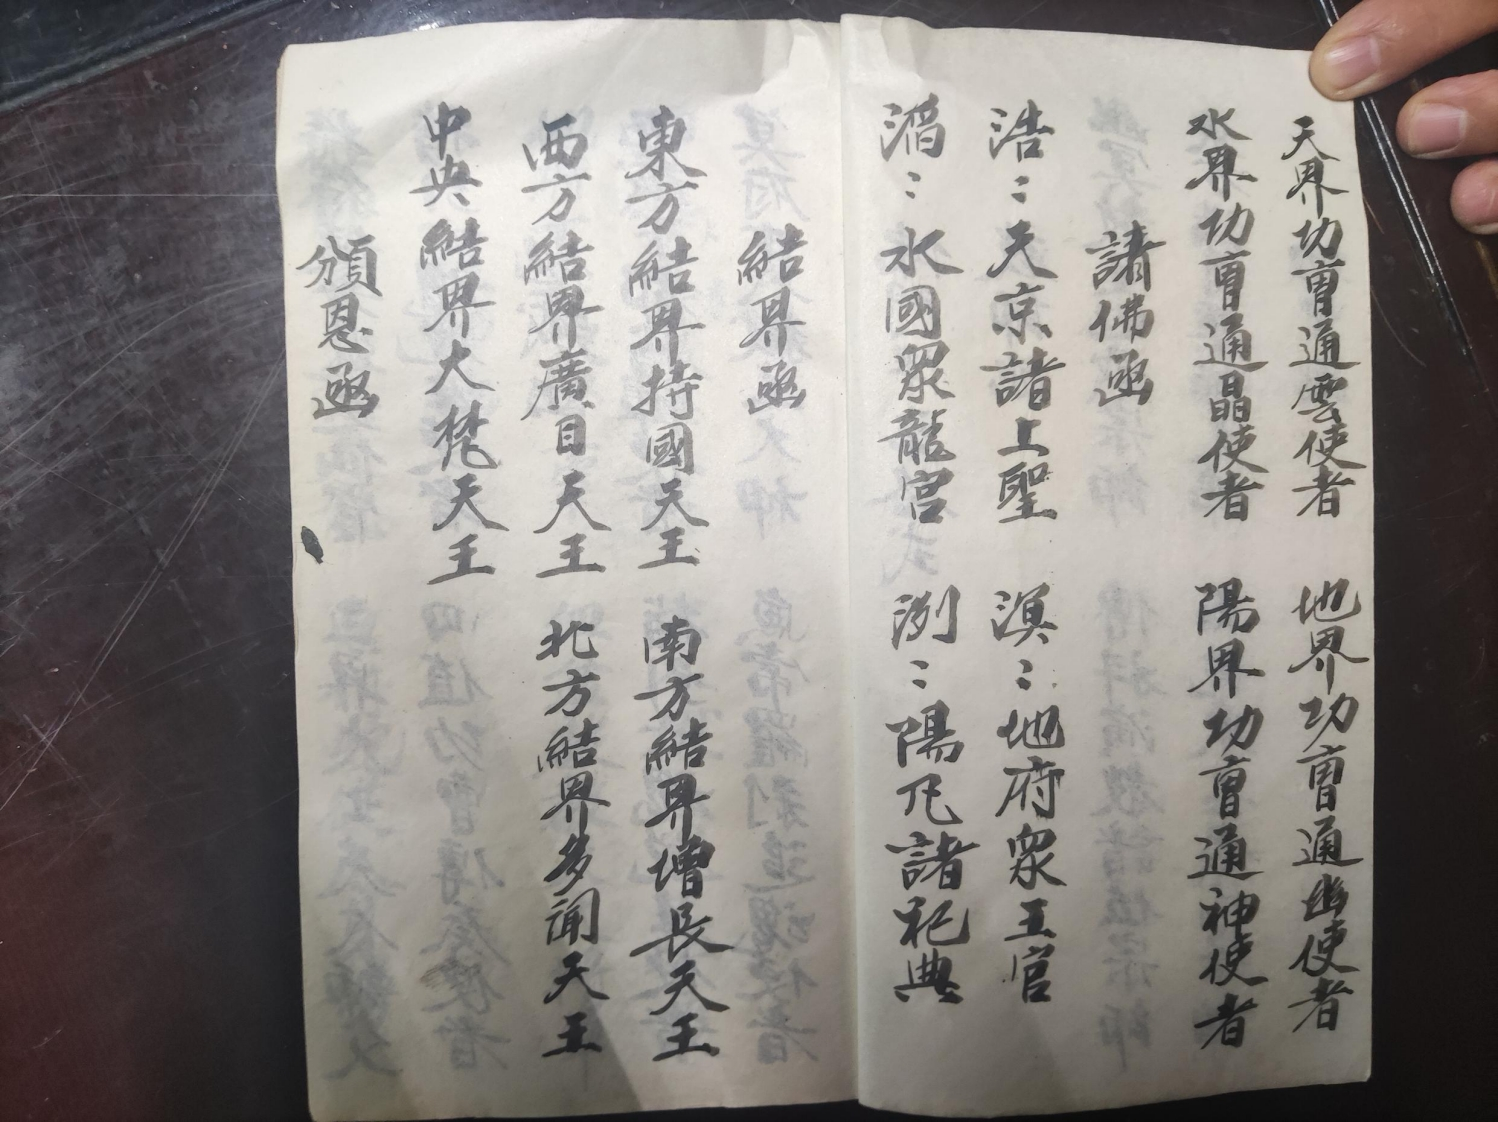 天界功曹通雲使者　地界功曹通幽使者
水界功曹通晶使者　陽界功曹通神使者
諸佛函
浩〻天京諸上聖　溟〻地府眾王官
滔〻水國眾龍宮　洌〻陽元諸祀典
結界函
東方結界持國天王　南方結界增長天王
西方結界廣目天王　北方結界多聞天王
中央結界大梵天王
頒恩函